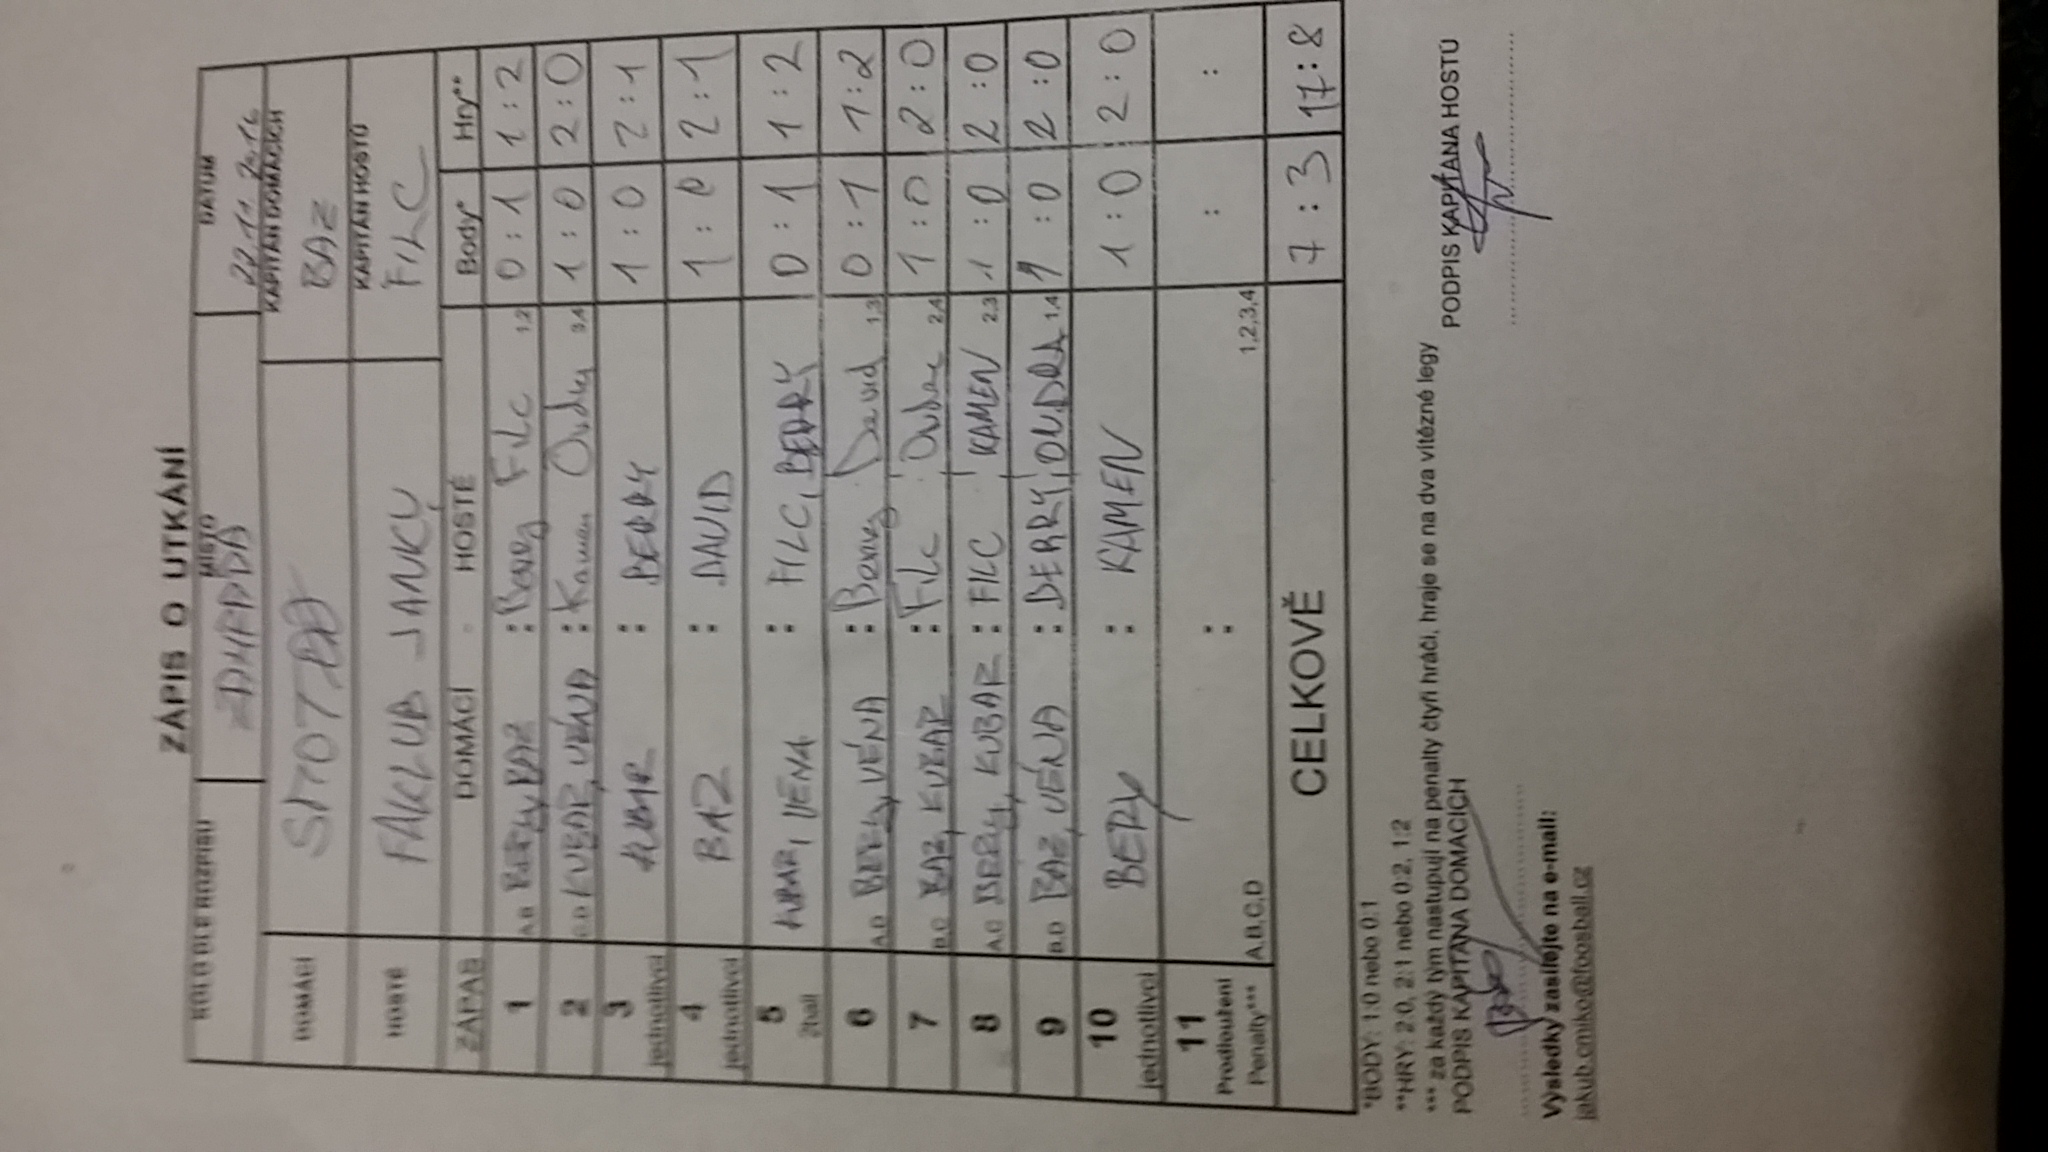 ZÁPIS O UTKÁNÍ
KOLO DLE ROZPISU MÍSTO DATUM
22.11.2016
DOMÁCÍ KAPITÁN DOMÁCÍCH
BAZ
HOSTÉ FAKLUB JANKŮ KAPITÁN HOSTŮ
FILC
ZÁPAS DOMÁCÍ : HOSTÉ Body* Hry**
1 A.B BERY, BAZ : Berry Filc 1,2 0 : 1 1 : 2
2 KUBAR, VÉNA : Kamen 3,4 1 : 0 2 : 0
3 jednotlivci KUBAR : BERRY 1 : 0 2 : 1
4 jednotlivci BAZ : DAVID 1 : 0 2 : 1
5 2ball KUBAR, VÉNA : FILC, BERRY 0 : 1 1 : 2
6 A.D BERY, VÉNA : Berry, David 1,3 0 : 1 1 : 2
7 B.C BAZ, KUBAR : Filc, 2,4 1 : 0 2 : 0
8 A.C BERY, KUBAR : FILC, KAMEN 2,3 1 : 0 2 : 0
9 B.D BAZ, VÉNA : BERRY, ONDRA 1,4 1 : 0 2 : 0
10 jednotlivci BERY : KAMEN 1 : 0 2 : 0
11 Prodloužení Penalty*** A,B,C,D : 1,2,3,4 : :
CELKOVĚ 7 : 3 17 : 8
*BODY: 1:0 nebo 0:1
**HRY: 2:0, 2:1 nebo 0:2, 1:2
*** za každý tým nastupují na penalty čtyři hráči, hraje se na dva vítězné legy
PODPIS KAPITÁNA DOMÁCÍCH PODPIS KAPITÁNA HOSTŮ
Výsledky zasílejte na e-mail:
jakub.crniko@foosball.cz